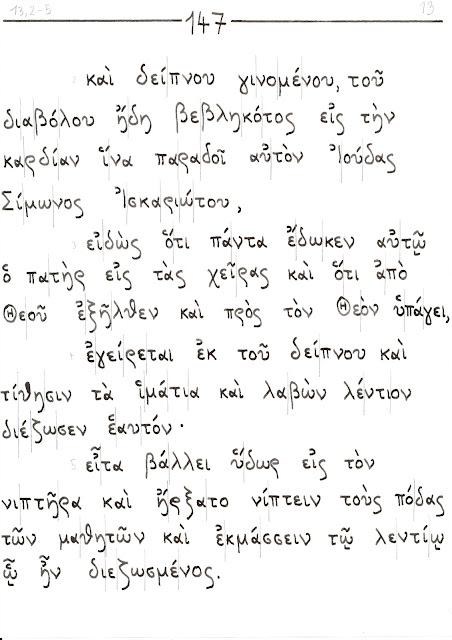 13,2-5
13
147
καὶ δείπνου γινομένου, τοῦ
διαβόλου ἤδη βεβληκότος εἰς τὴν
καρδίαν ἵνα παραδοῖ αὐτὸν Ἰούδας
Σίμωνος Ἰσκαριώτου,
3 εἰδὼς ὅτι πάντα ἔδωκεν αὐτῷ
ὁ πατὴρ εἰς τὰς χεῖρας καὶ ὅτι ἀπὸ
Θεοῦ ἐξῆλθεν καὶ πρὸς τὸν Θεὸν ὑπάγει,
ἐγείρεται ἐκ τοῦ δείπνου καὶ
τίθησιν τὰ ἱμάτια καὶ λαβὼν λέντιον
διέζωσεν ἑαυτόν·
5 εἶτα βάλλει ὕδωρ εἰς τὸν
νιπτῆρα καὶ ἤρξατο νίπτειν τοὺς πόδας
τῶν μαθητῶν καὶ ἐκμάσσειν τῷ λεντίῳ
ᾧ ἦν διεζωσμένος.